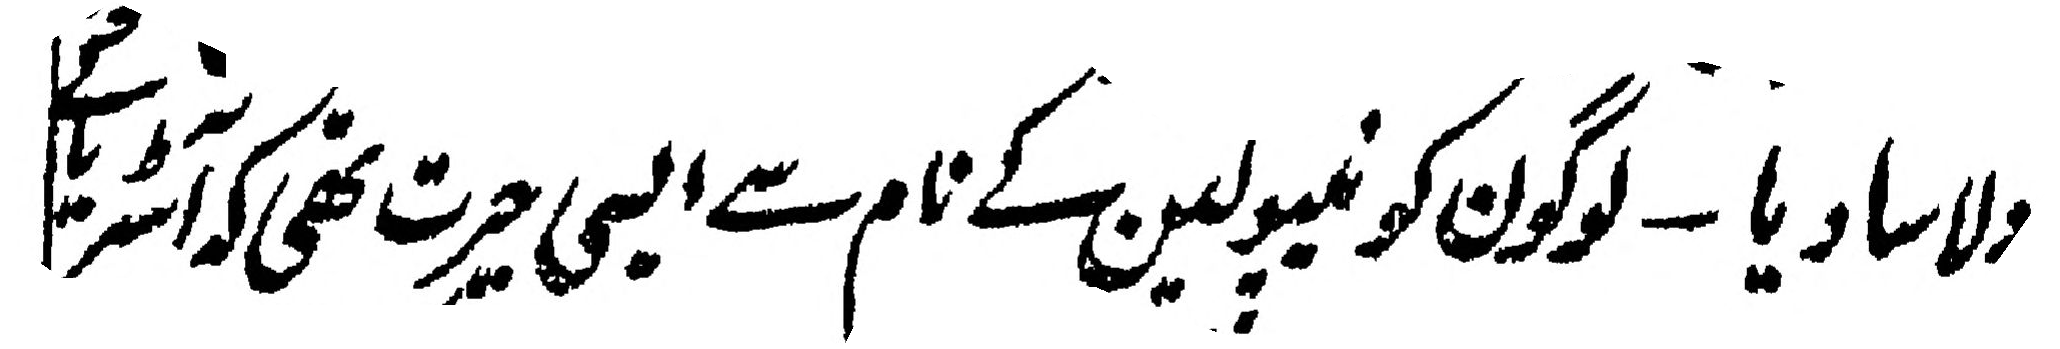 دلاسا دیا ۔ لوگون کو نیپولین کے نام سے ایسی حیرت تھی کہ آسٹریا